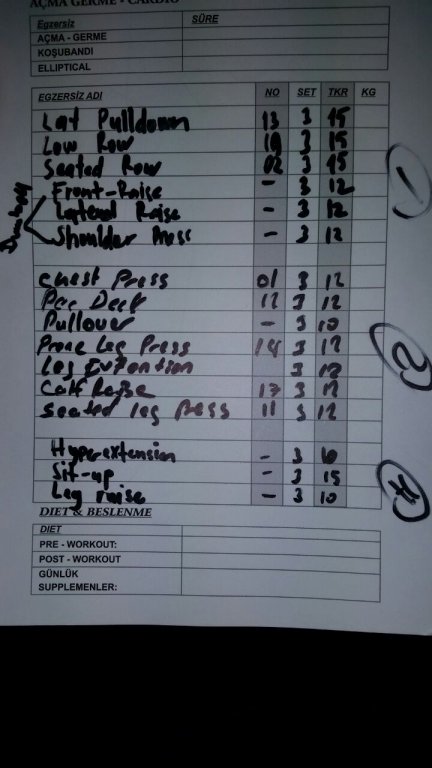 AÇMA GERME - CARDIO
Egzersiz SÜRE
AÇMA - GERME
KOŞUBANDI
ELLIPTICAL
EGZERSİZ ADI NO SET TKR KG
Lat Pulldown 13 3 15
Low Row 19 3 15
Seated Row 02 3 15
Front-Raise - 3 12
Lateral Raise - 3 12
Shoulder Press - 3 12
1
Chest Press 01 3 12
Pec Deck 12 3 12
Pullover - 3 10
Prone Leg Press 14 3 12
2
Leg Extention 3 12
Calf Raise 17 3 12
Seated leg press 11 3 12
Hyperextension - 3 10
Sit-up - 3 15
Leg raise - 3 10
DIET & BESLENME
DIET
PRE - WORKOUT:
POST - WORKOUT
GÜNLÜK
SUPPLEMENLER: